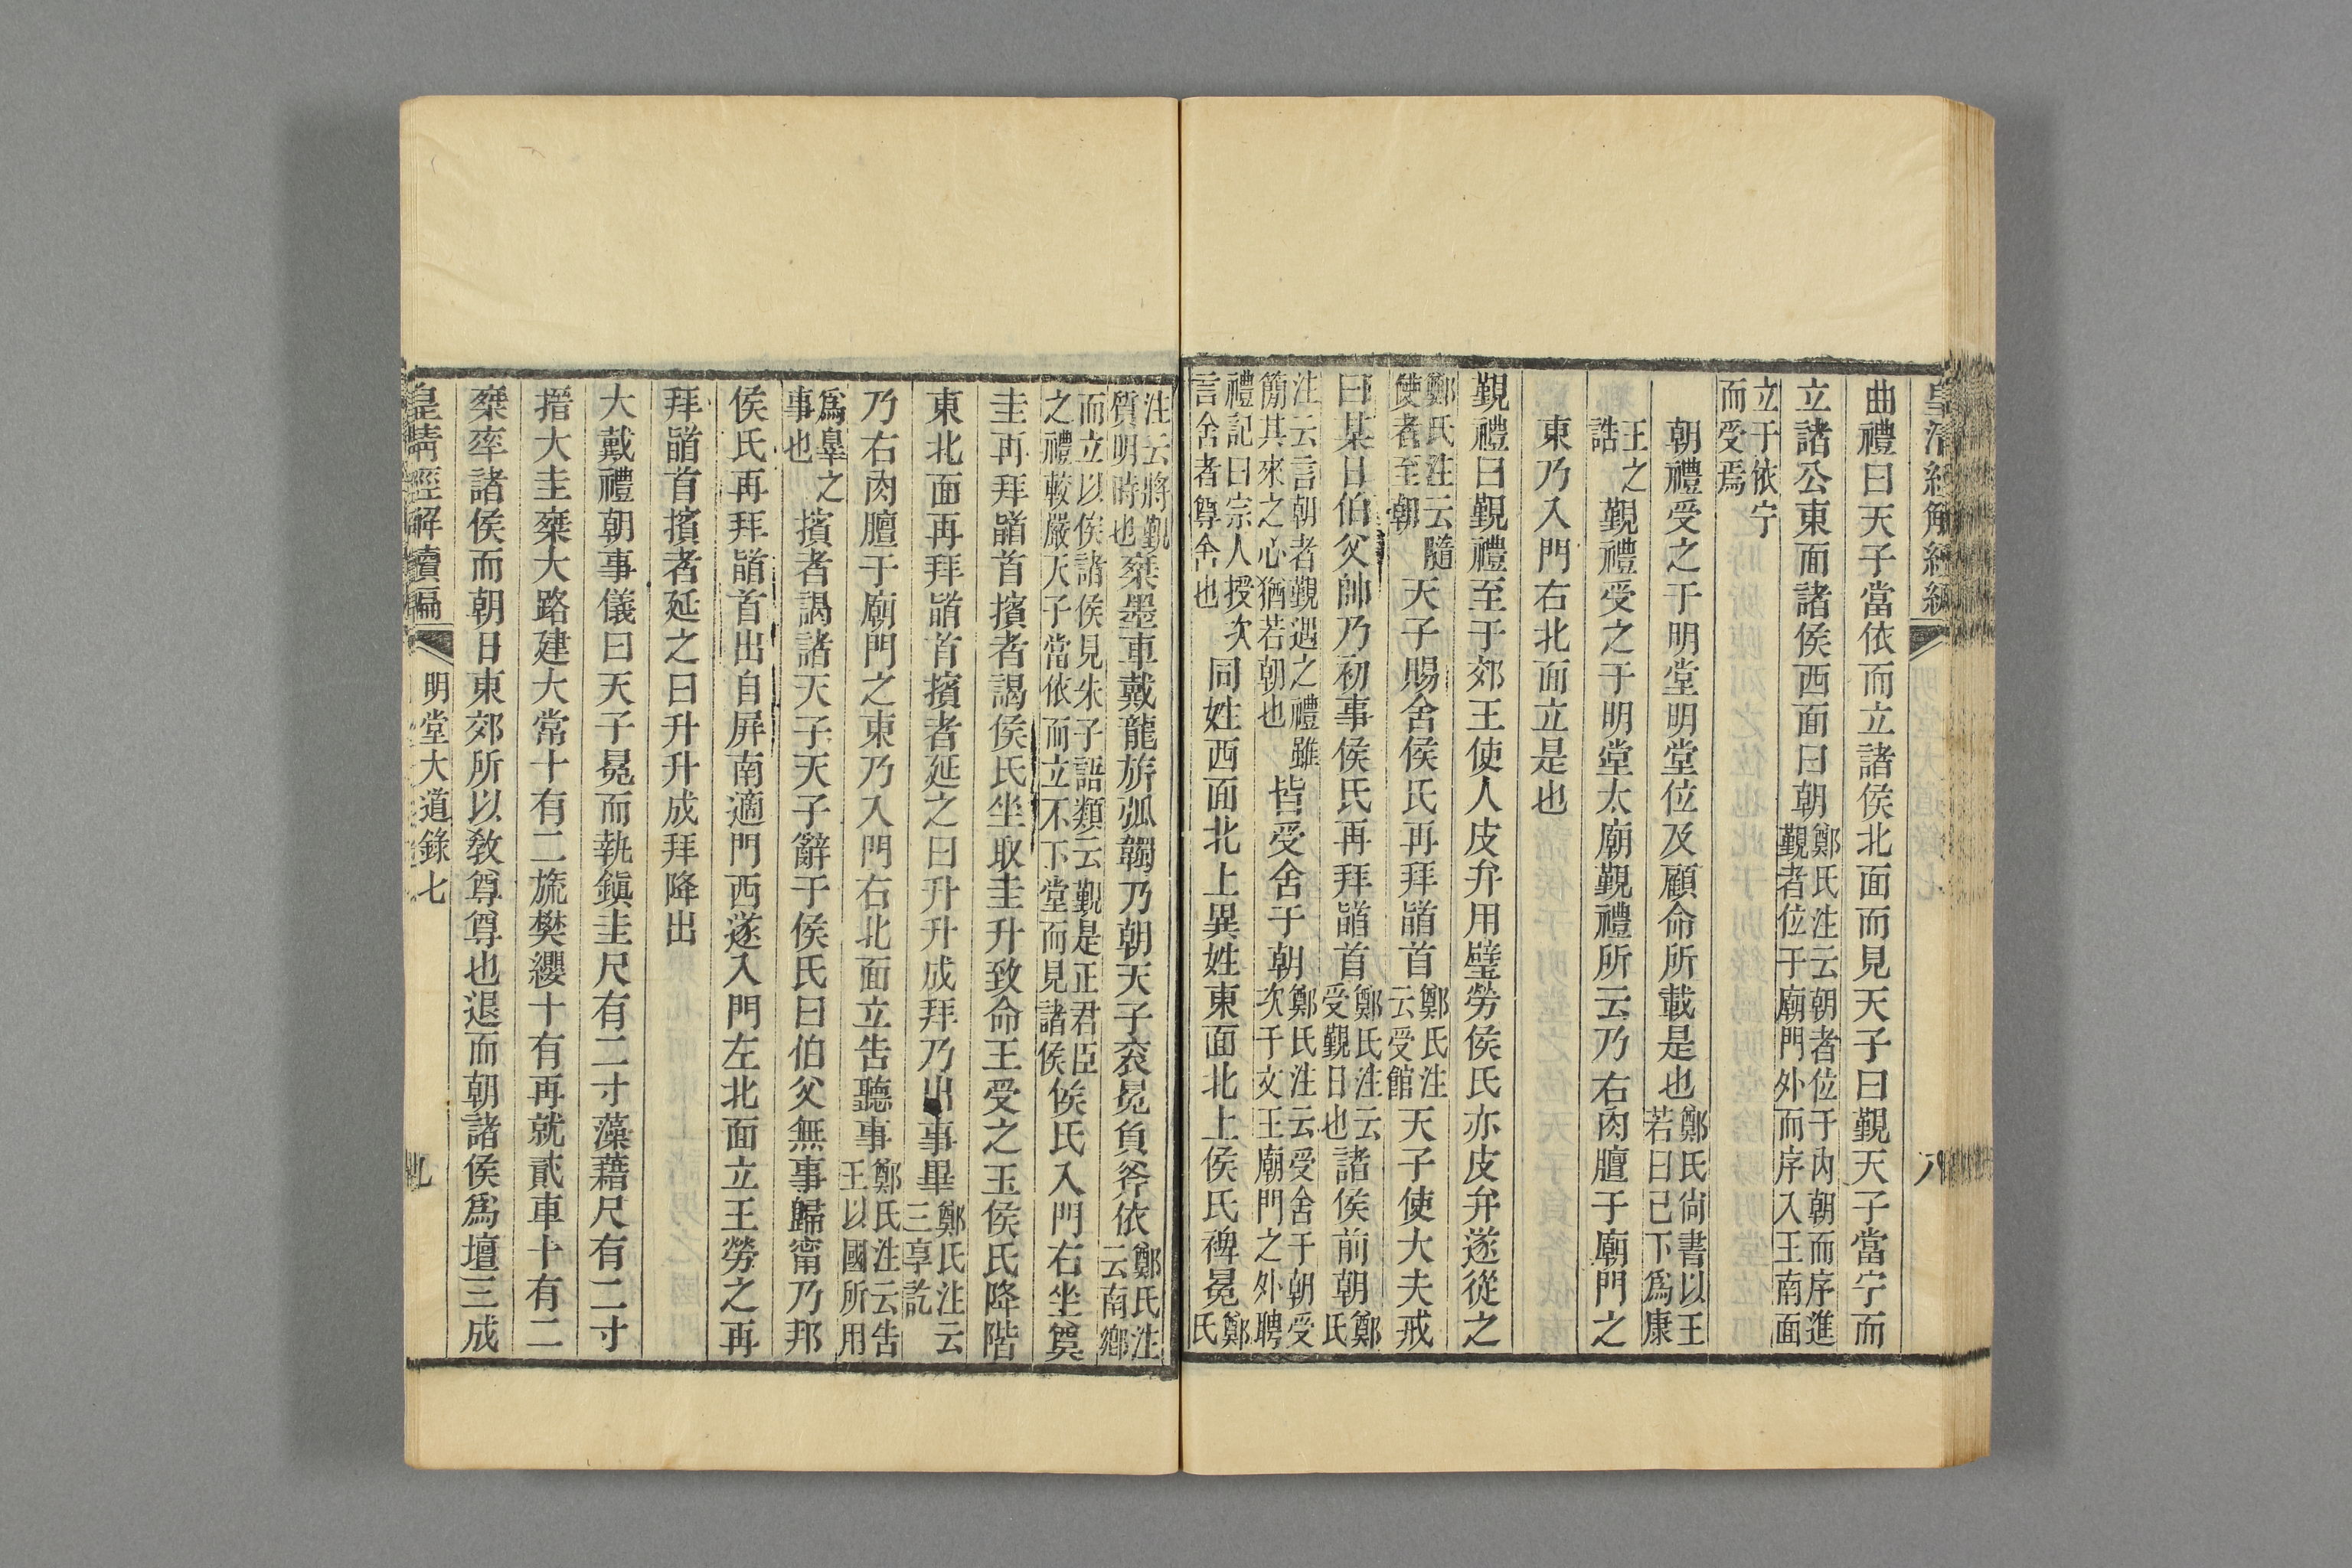 皇清經解續編　八
曲禮曰天子當依而立諸侯北面而見天子曰覲天子當宁而
立諸公東面諸侯西面曰朝鄭氏注云朝者位于內朝而序進覲者位于廟門外而序入王南面
立于依宁而受焉
朝禮受之于明堂明堂位及顧命所載是也鄭氏尙書以王若曰已下爲康
王之誥覲禮受之于明堂太廟覲禮所云乃右肉膻于廟門之
東乃入門右北面立是也
覲禮曰覲禮至于郊王使人皮弁用璧勞侯氏亦皮弁遂從之
鄭氏注云隨使者至朝天子賜舍侯氏再拜䭫首鄭氏注云受館天子使大夫戒
曰某日伯父帥乃初事侯氏再拜䭫首鄭氏注云受覲日也諸侯前朝鄭氏
注云言朝者覲遇之禮雖簡其來之心猶若朝也皆受舍于朝鄭氏注云受舍于朝受次于文王廟門之外聘
禮記曰宗人授次言舍者尊舍也同姓西面北上異姓東面北上侯氏裨冕鄭氏
注云將覲質明時也椉墨車戴龍旂弧韣乃朝天子袞冕負斧依鄭氏注云南鄉
而立以俟諸侯見朱子語類云覲是正君臣之禮較嚴天子當依而立不下堂而見諸侯侯氏入門右坐奠
圭再拜䭫首擯者謁侯氏坐取圭升致命王受之玉侯氏降階
東北面再拜䭫首擯者延之曰升升成拜乃出事畢鄭氏注云三享訖
乃右肉膻于廟門之東乃入門右北面立告聽事鄭氏注云告王以國所用
爲辠之事也擯者謁諸天子天子辭于侯氏曰伯父無事歸甯乃邦
侯氏再拜䭫首出自屏南適門西遂入門左北面立王勞之再
拜䭫首擯者延之曰升升成拜降出
大戴禮朝事儀曰天子冕而執鎭圭尺有二寸藻藉尺有二寸
搢大圭椉大路建大常十有二旒樊纓十有再就貳車十有二
椉率諸侯而朝日東郊所以敎尊尊也退而朝諸侯爲壇三成
皇淸經解續編　明堂大道錄七　九